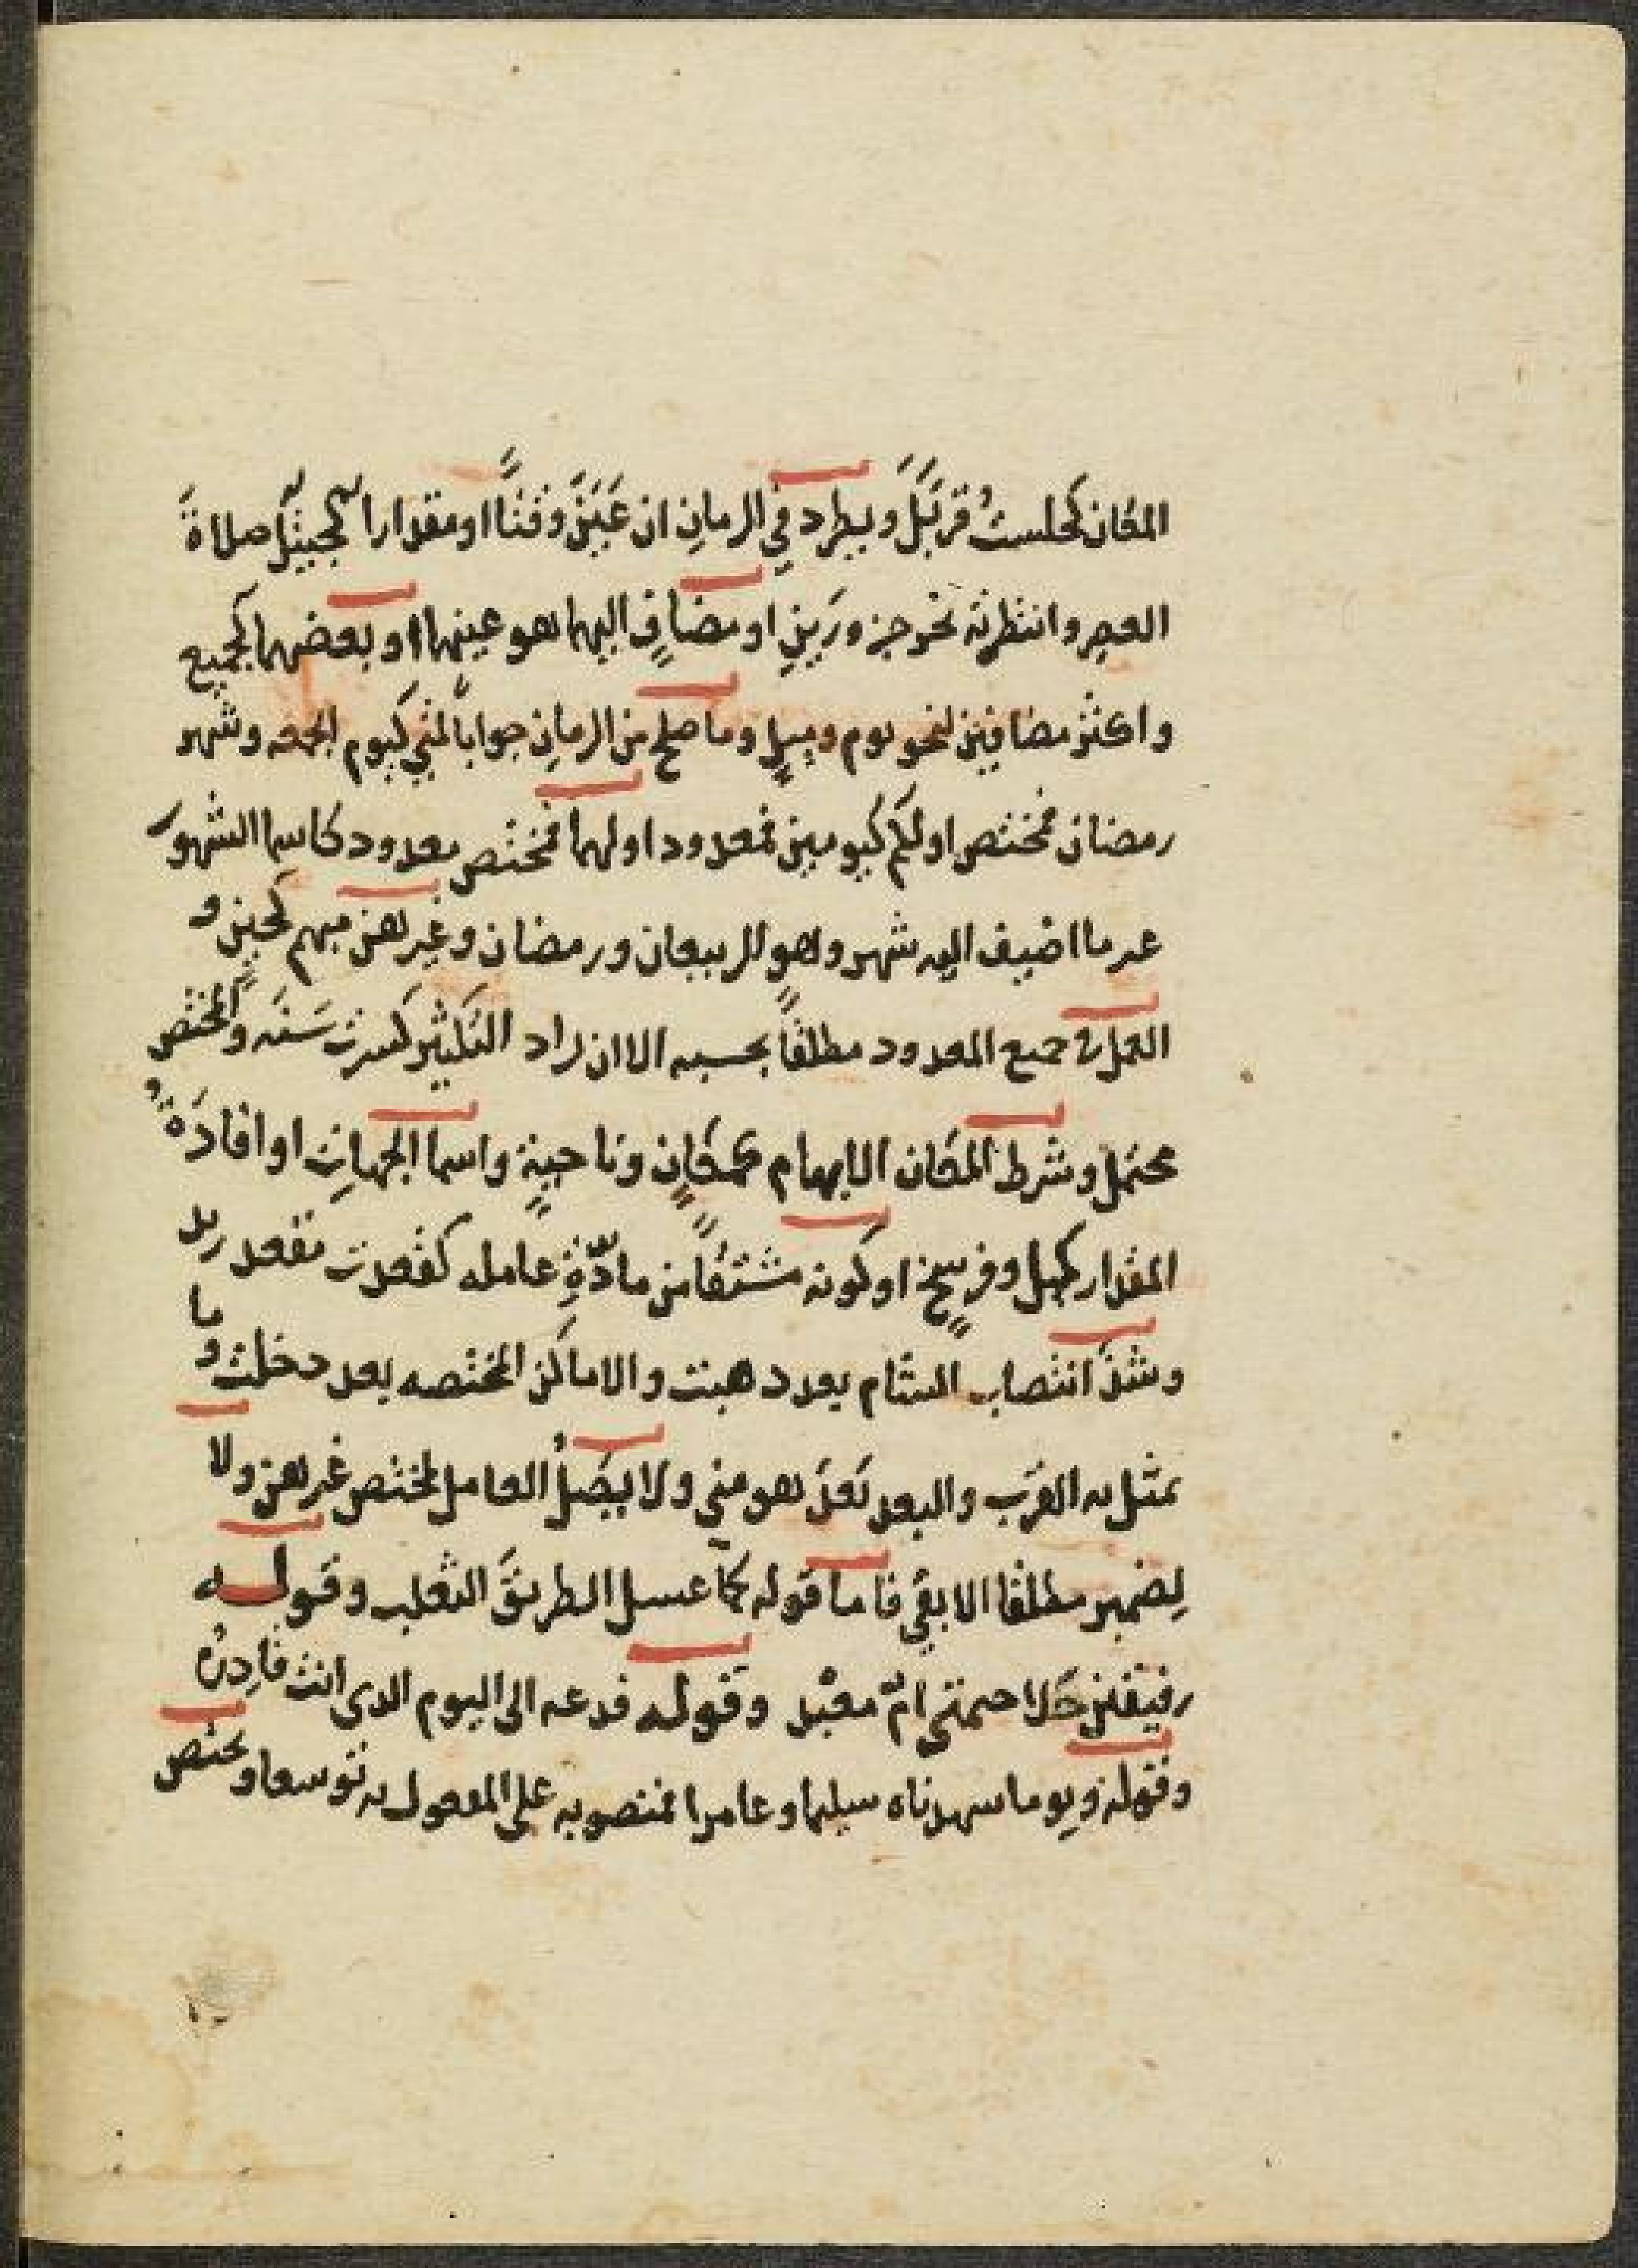 المكان كجلست قربَكَ ويطرد في الزمانِ ان عَيَنَ وقتًا او مقدارا كجيئك صلاة
العصر وانتظرته نحر جزورين او مضافٍ اليهما هو عينهما او بعضهما كجميع
واكثر مضافين لنحو يوم وميلٍ وما صلح من الزمانِ جوابًا لمتي كيوم الجمعه وشهر
رمضان فمختص او لكم كيومين فمعدود او لهما فمختص معدود كاسما الشهور
غير ما اضيف اليه شهر وهو الربيعان ورمضان وغيرهن مبهم كحينٍ و
العمل في جميع المعدود مطلقًا بحسبه الا ان راد التكثير كسرت سَنَه والمختص
محتمل وشرط المكان الابهام كمكانٍ وناحيةٍ واسما الجهاتِ او افادَةُ
المقدار كميل وفرسخٍ او كونه مشتقًا من مادّةِ عامله كقعدت مقعد زيد
وشذ انتصاب الشام بعد ذهبت والاماكن المختصه بعد دخلت وما
تمثل به القرب والبعد نحو هو مني ولا يصل العامل لمختص غيرهن ولا
لضمير مطلقا الا بفي فاما قوله كما عسل الطريقَ الثعلب وقوله
رفيقين حَلا خيمتي امّ معبد وقوله فدعه الى اليوم الذي انت قادِرُه
وقوله ويوما شهدناه سليما وعامرا فمنصوبه على المفعول به توسعا ويختص